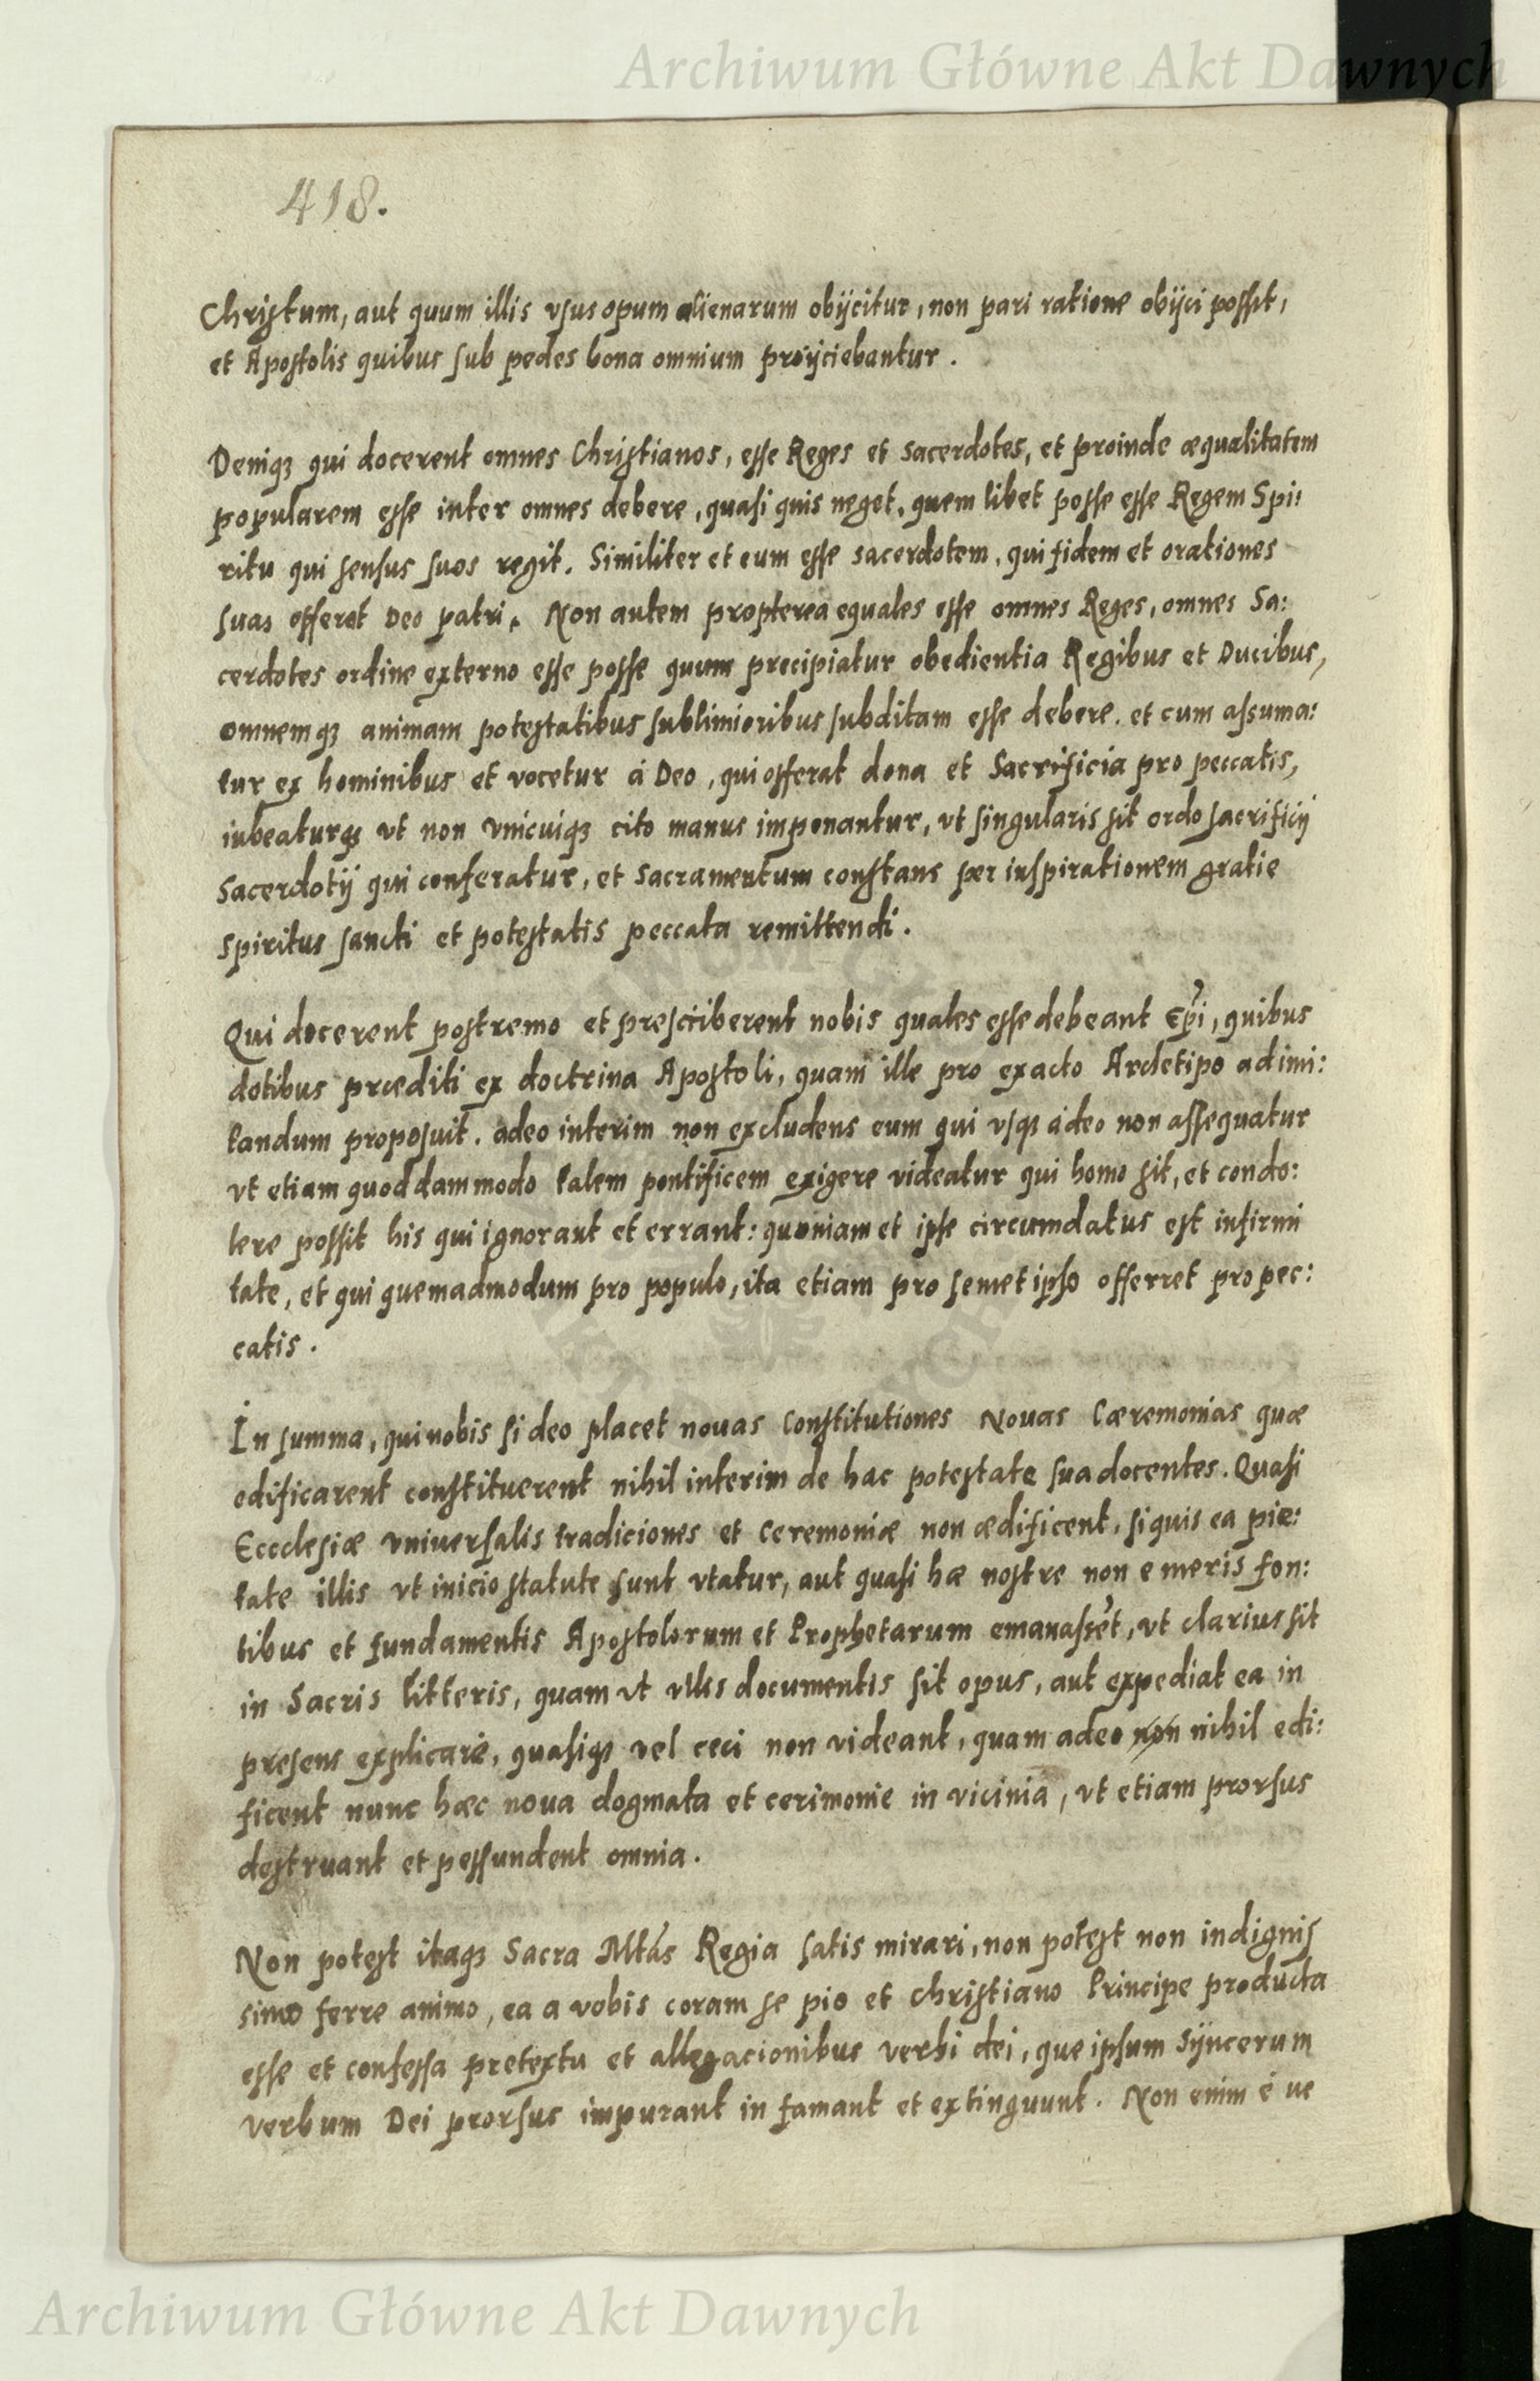 Archiwum Główne Akt Dawnych
418.
Christum, aut quum illis vsus opum alienarum obijcitur, non pari ratione obijci possit,
et Apostolis quibus sub pedes bona omnium proijciebantur.
Deniqꝫ qui docerent omnes Christianos, esse Reges et Sacerdotes, et proinde æqualitatem
popularem esse inter omnes debere, quasi quis neget, quem libet posse esse Regem Spi:
ritu qui sensus suos regit. Similiter et eum esse sacerdotem, qui fidem et orationes
suas offerat Deo patri. Non autem propterea equales esse omnes Reges, omnes Sa:
cerdotes ordine externo esse posse quum precipiatur obedientia Regibus et Ducibus,
omnemqꝫ animam potestatibus sublimioribus subditam esse debere. et cum assuma:
tur ex hominibus et vocetur á Deo, qui offerat dona et Sacrificia pro peccatis,
iubeaturqꝫ vt non vnicuiqꝫ cito manus imponantur, vt singularis sit ordo sacrificij
Sacerdotij qui conferatur, et Sacramentum constans per inspirationem gratie
spiritus sancti et potestatis peccata remittendi.
Qui docerent postremo et prescriberent nobis quales esse debeant Ep̃i, quibus
dotibus præditi ex doctrina Apostoli, quam ille pro exacto Archetipo ad imi:
tandum proposuit. adeo interim non excludens eum qui vsqꝫ adeo non assequatur
vt etiam quoddammodo talem pontificem exigere videatur qui homo sit, et condo:
lere possit his qui ignorant et errant: quoniam et ipse circumdatus est infirmi
tate, et qui quemadmodum pro populo, ita etiam pro semet ipso offerret pro pec:
catis.
In summa, qui nobis si deo placet nouas Constitutiones Nouas Cæremonias quæ
edificarent constituerent nihil interim de hac potestate sua docentes. Quasi
Eccclesiæ vniuersalis tradiciones et Ceremoniæ non ædificent, si quis ea pie:
tate illis vt inicio statute sunt vtatur, aut quasi hæ nostre non e meris fon:
tibus et fundamentis Apostolorum et Prophetarum emanasse͂t, vt clarius sit
in Sacris litteris, quam vt vllis documentis sit opus, aut expediat ea in
presens explicare, quasiqꝫ vel ceci non videant, quam adeo non nihil edi:
ficent nunc hæc noua dogmata et cerimonie in vicinia, vt etiam prorsus
destruant et pessundent omnia.
Non potest itaqꝫ Sacra Mtás Regia satis mirari, non potest non indignis
simo ferre animo, ea a vobis coram se pio et christiano Principe producta
esse et confessa pretextu et allegacionibus verbi dei, que ipsum Sÿncerum
verbum Dei prorsus impurant in famant et extinguunt. Non enim é ve
Archiwum Główne Akt Dawnych